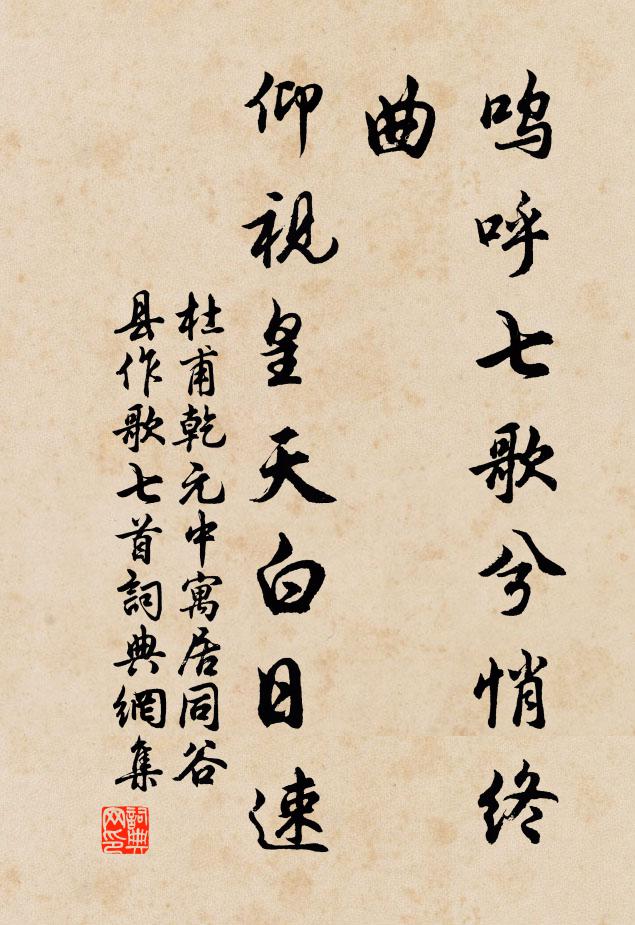 呜呼七歌兮悄终
曲
仰视皇天白日速
杜甫乾元中寓居同谷
县作歌七首詞典網集
詞典
网印